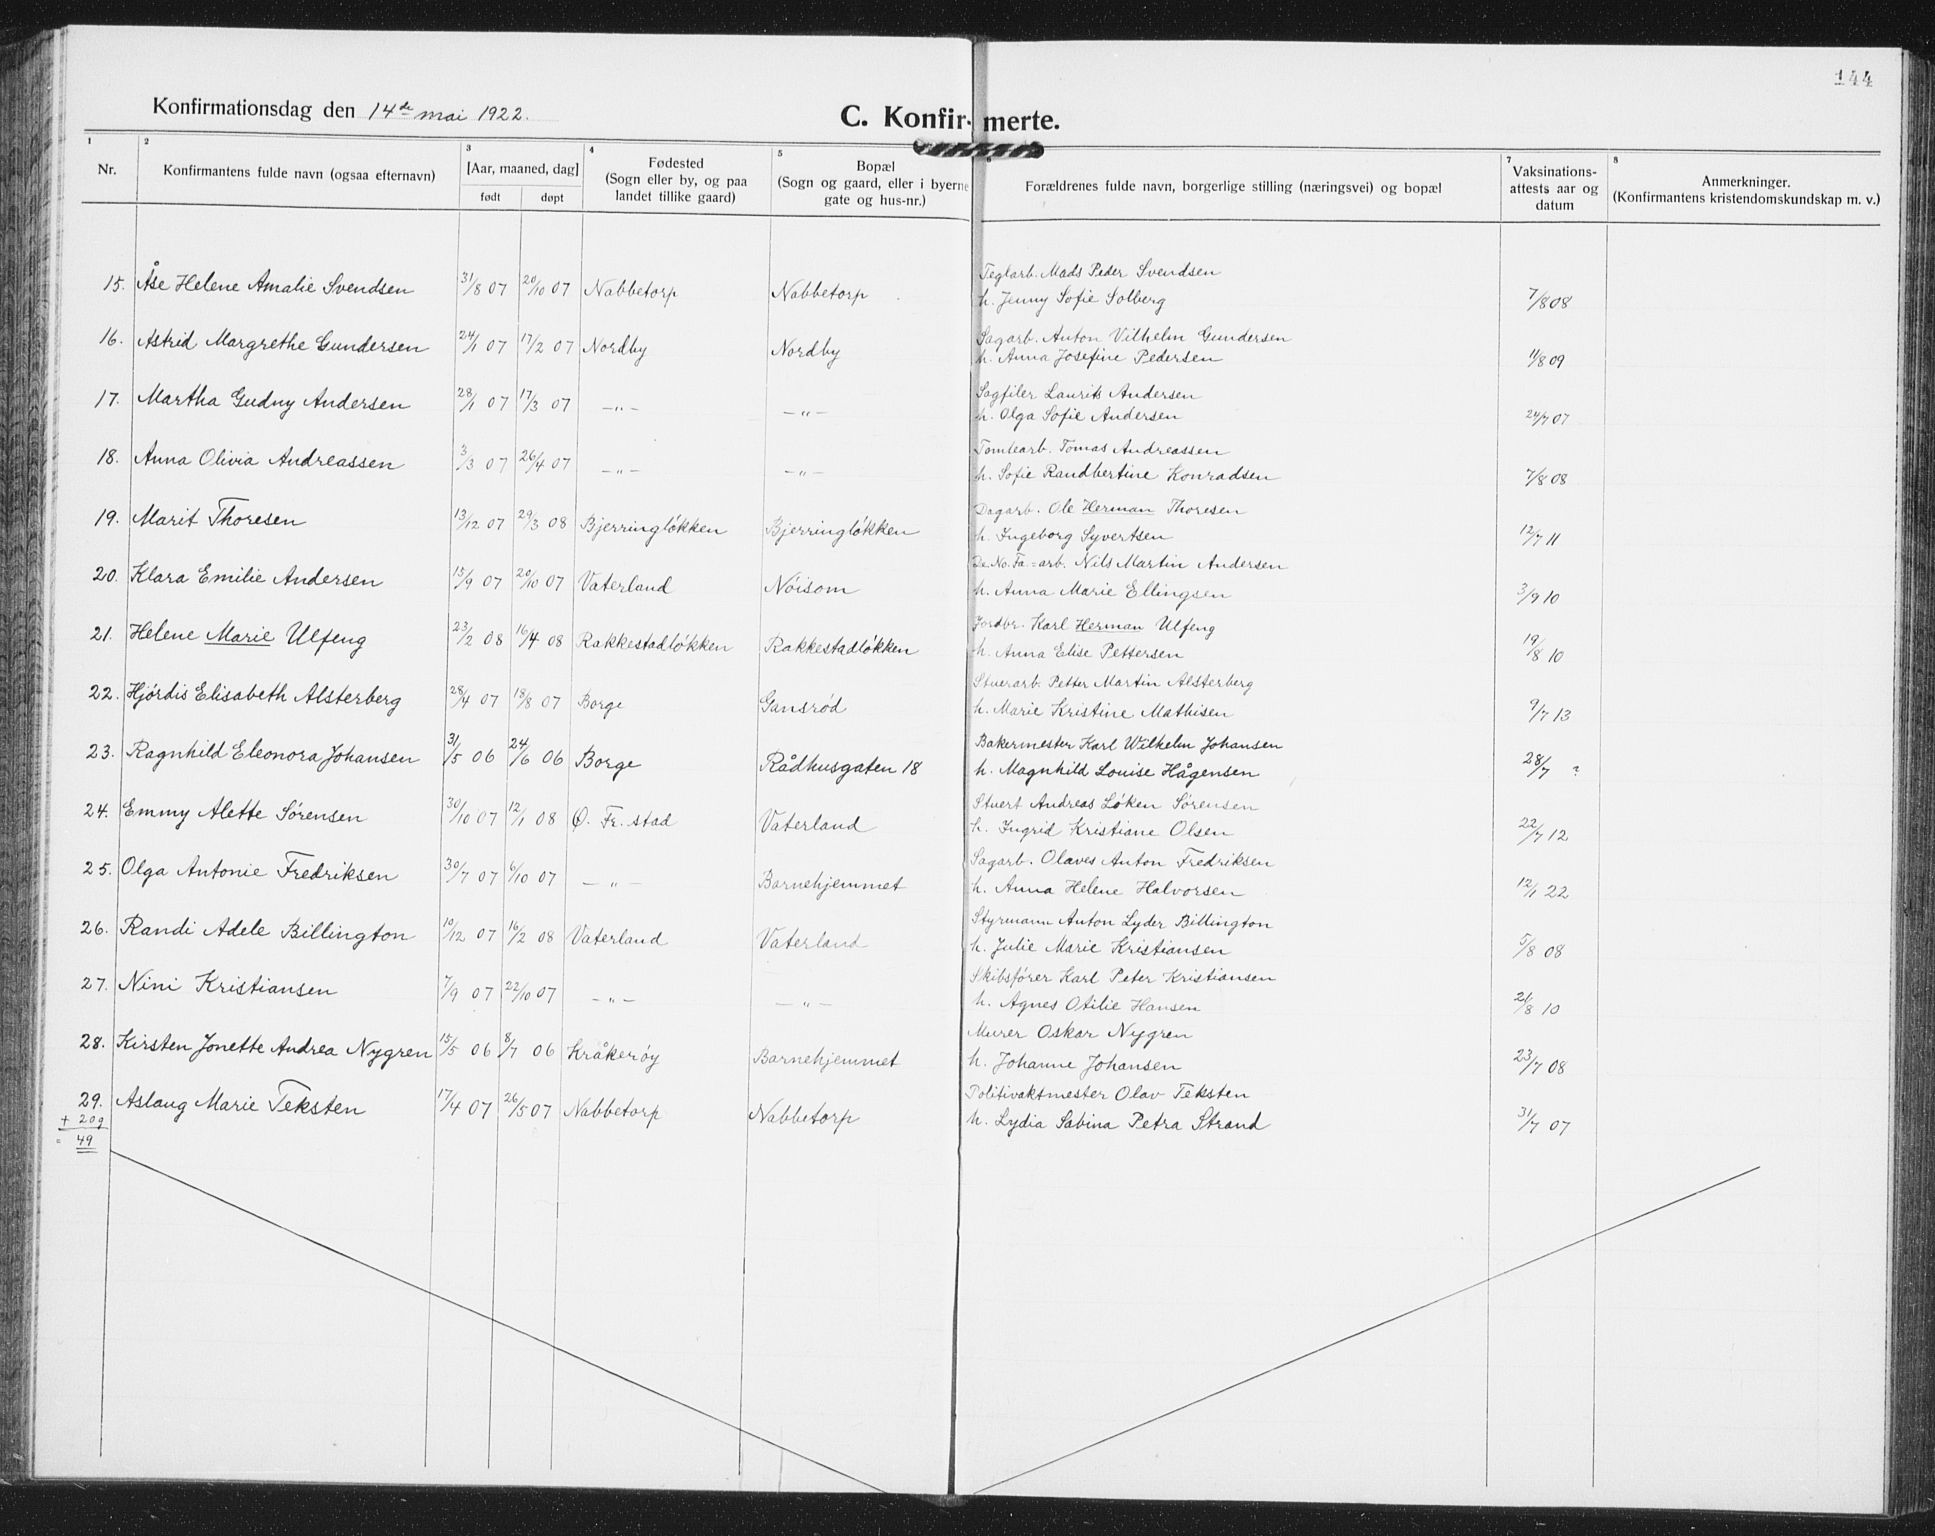 144
Konfirmationsdag den 14de mai 1922.
C. Konfirmerte.
1 2 3 4 5 7 8
Nr. Konfirmantens fulde navn (ogsaa efternavn) [Aar, maaned, dag] født døpt Fødested (Sogn eller by, og paa landet tillike gaard) Bopæl (Sogn og gaard, eller i byerne gate og hus-nr.) Forældrenes fulde navn, borgerlige stilling (næringsvei) og bopæl Vaksinations-attests aar og datum Anmerkninger. (Konfirmantens kristendomskundskap m. v.)
Teglarb. Mads Peder Svendsen
15. Åse Helene Amalie Svendsen 31/8 07 20/10 07 Nabbetorp Nabbetorp h. Jenny Sofie Solberg 7/8 08
Sagarb. Anton Vilhelm Gundersen
16. Astrid Margrethe Gundersen 24/1 07 17/2 07 Nordby Nordby h. Anna Josefine Pedersen 11/8 09
Sagfiler Laurits Andersen
17. Martha Gudny Andersen 28/1 07 17/3 07 —"— —"— h. Olga Sofie Andersen 24/7 07
Tomtearb. Tomas Andreassen
18. Anna Olivia Andreassen 3/3 07 26/4 07 —"— —"— h. Sofie Randbertine Konradsen 7/8 08
Dagarb. Ole Herman Thoresen
19. Marit Thoresen 13/12 07 29/3 08 Bjerringløkken Bjerringløkken h. Ingeborg Syvertsen 12/7 11
De No. Fa=arb. Nils Martin Andersen
20. Klara Emilie Andersen 15/9 07 20/10 07 Vaterland Nöisom h. Anna Marie Ellingsen 3/9 10
Jordbr. Karl Herman Ulfeng
21. Helene Marie Ulfeng 23/2 08 16/4 08 Rakkestadløkken Rakkestadløkken h. Anna Elise Pettersen 19/8 10
Stuerarb. Petter Martin Alsterberg
22. Hjördis Elisabeth Alsterberg 28/4 07 18/8 07 Borge Gansrød h. Marie Kristine Mathisen 9/7 13
Bakermester Karl Wilhelm Johansen
23. Ragnhild Eleonora Johansen 31/5 06 24/6 06 Borge Rådhusgaten 18 h. Magnhild Louise Hågensen 28/7 ?
Stuert Andreas Løken Sørensen
24. Emmy Alette Sørensen 30/10 07 12/1 08 Ø. Fr. stad Vaterland h. Ingrid Kristiane Olsen 22/7 12
Sagarb. Olaves Anton Fredriksen
25. Olga Antonie Fredriksen 30/7 07 6/10 07 —"— Barnehjemmet h. Anna Helene Halvorsen 12/1 22
Styrmann Anton Lyder Billington
26. Randi Adele Billington 10/12 07 16/2 08 Vaterland Vaterland h. Julie Marie Kristiansen 5/8 08
Skibsfører Karl Peter Kristiansen
27. Nini Kristiansen 7/9 07 22/10 07 —"— —"— h. Agnes Otilie Hansen 21/8 10
Murer Oskar Nygren
28. Kirsten Jonette Andrea Nygren 15/5 06 8/7 06 Kråkerøy Barnehjemmet h. Johanne Johansen 23/7 08
Politivaktmester Olav Teksten
29. Aslaug Marie Teksten 17/4 07 26/5 07 Nabbetorp Nabbetorp h. Lydia Sabina Petra Strand 31/7 07
+ 20g
= 49